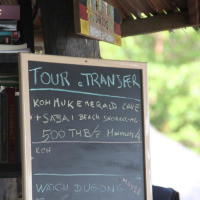 TOUR & TRANSFER
KOH MUK EMERALD CAVE
+ SABAI BEACH SNORKELING
500 THB/2
KOH
WATCH DUGONG